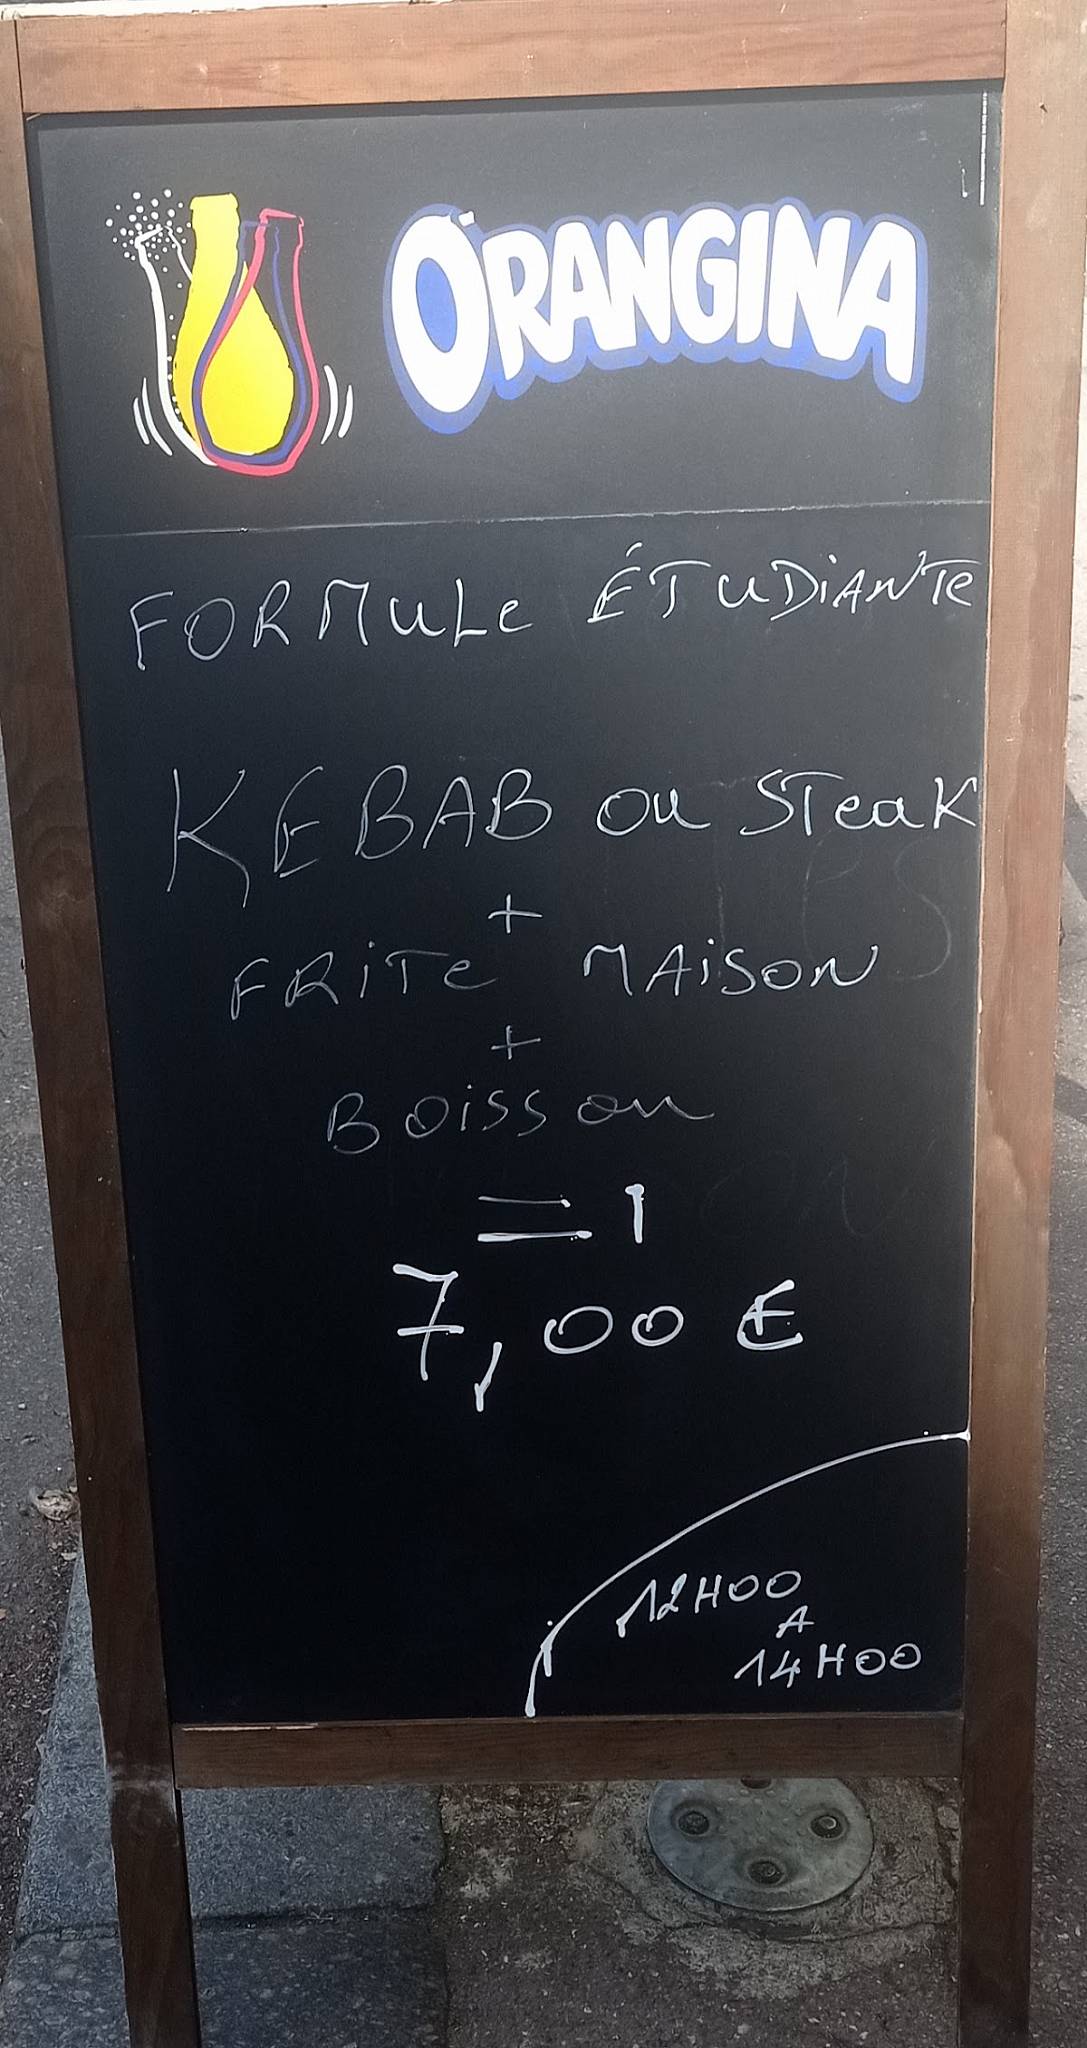 ORANGINA
FORMULE ÉTUDIANTE
KEBAB ou STeaK
+
FRiTe MAiSON
+
BOiSSon
=
7,00 €
12H00
A
14H00